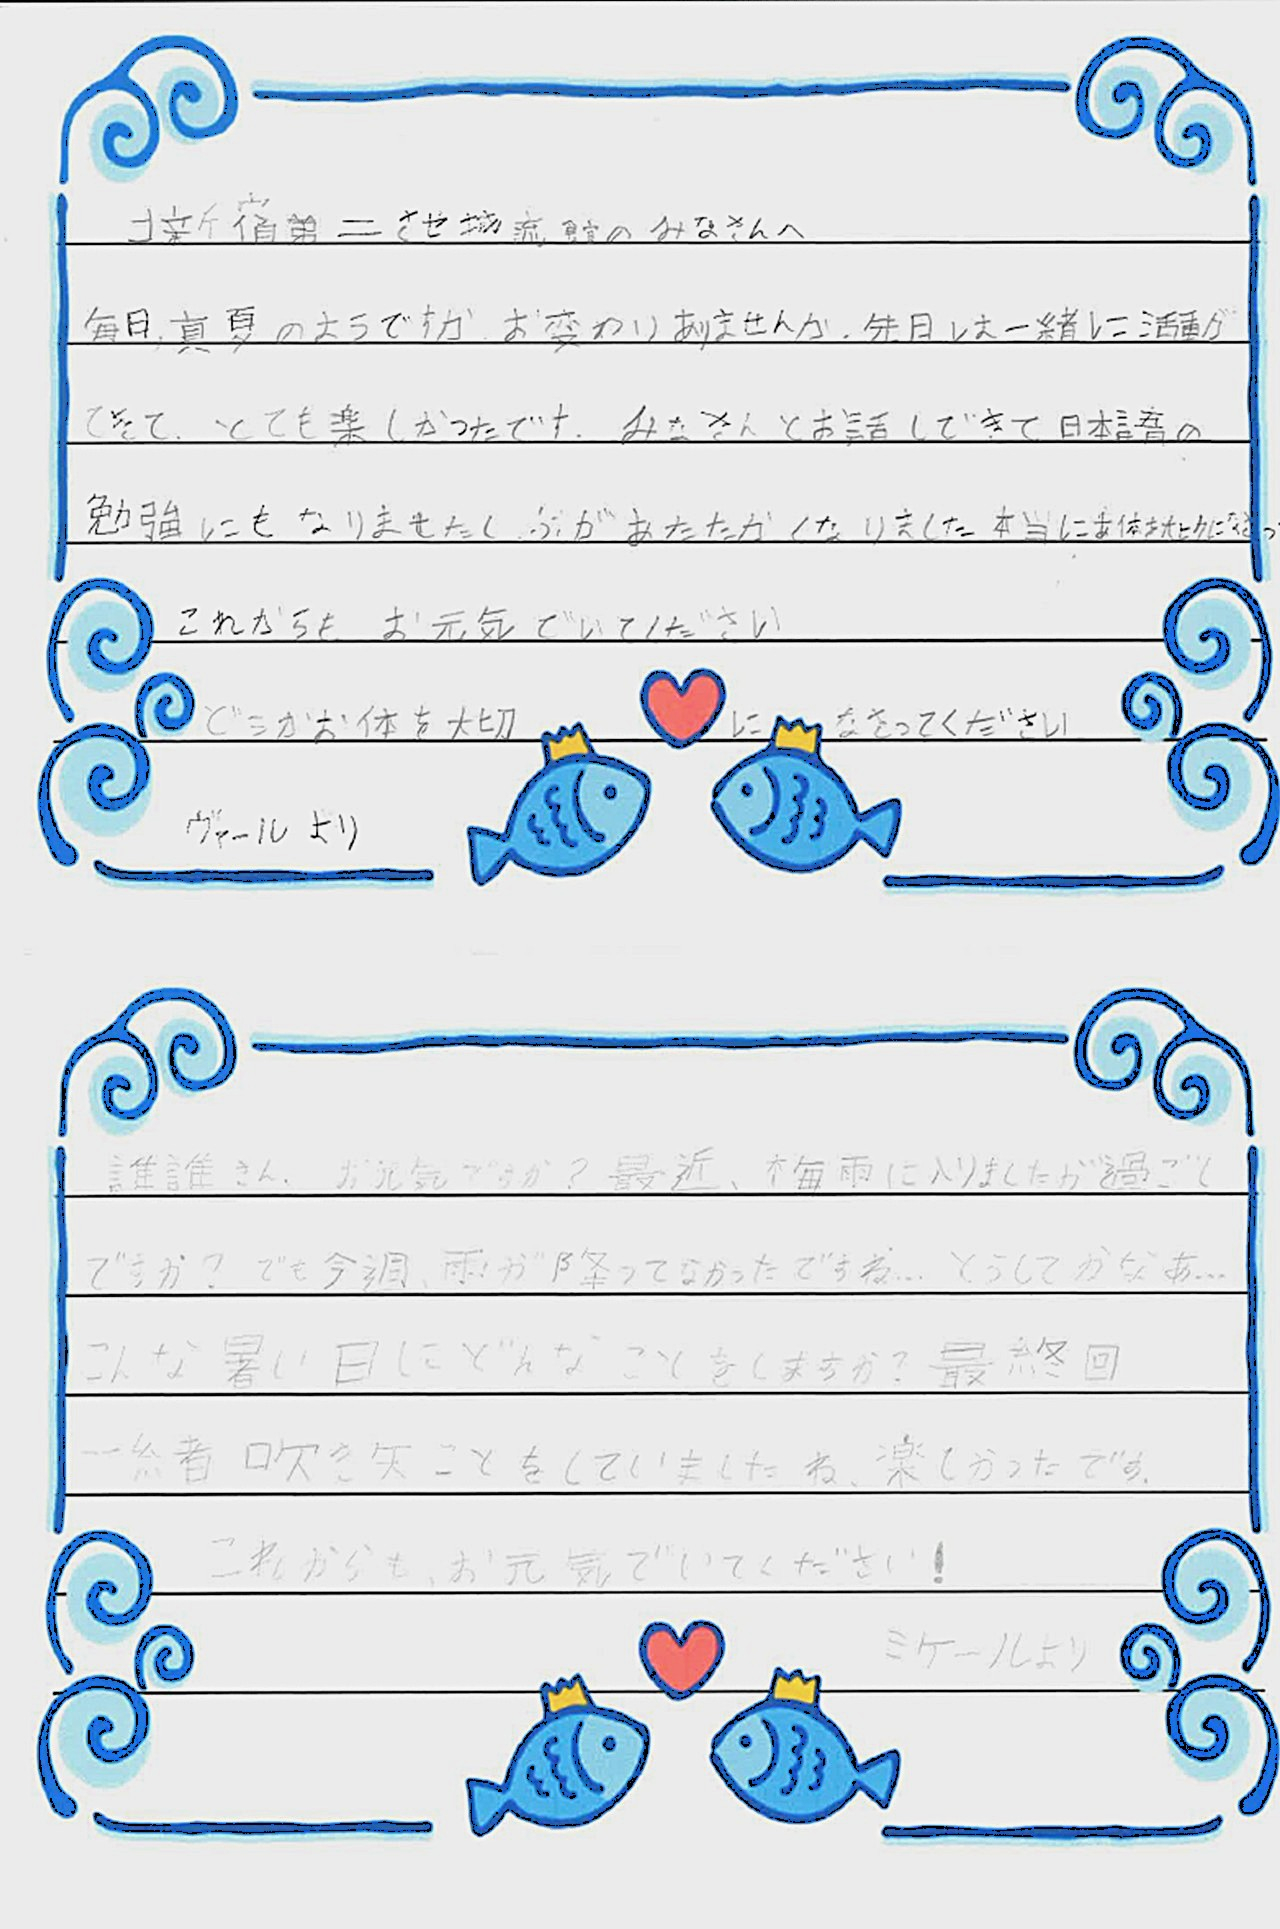 新宿第二 地域 館のみなさんへ
毎日、真夏のようですが お変わりありませんか、先日は一緒に活動が
できて、とても楽しかったです。みなさんとお話しできて日本語の
勉強にもなりましたし 心があたたかくなりました 本当にお体を大
これからも お元気でいてください
どうかお体を大切になさってください
ヴァールより
誰誰さん、お元気ですか？最近、梅雨に入りましたが過ごし
ですか？でも今週、雨が降ってなかったですね… どうしてかなあ…
こんな暑い日にどんなことをしますか？最終回
一緒 吹き矢ことをしていましたね、楽しかったです。
これからも、お元気でいてください！
ミケールより